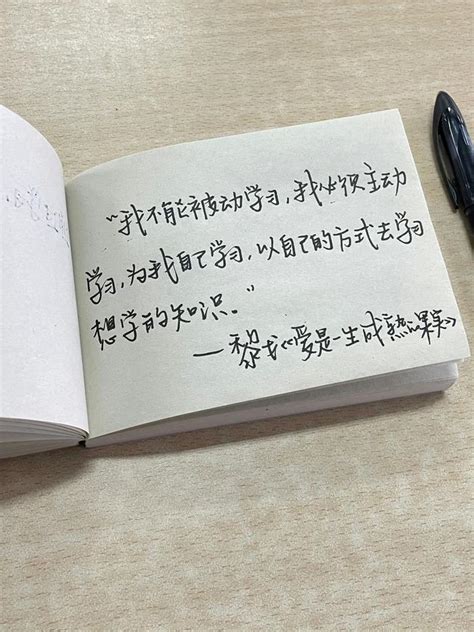 “我不能被动学习，我必须主动
学习，为我自己学习，以自己的方式去学习
想学的知识。”
—黎戈《爱是一生成熟的果实》